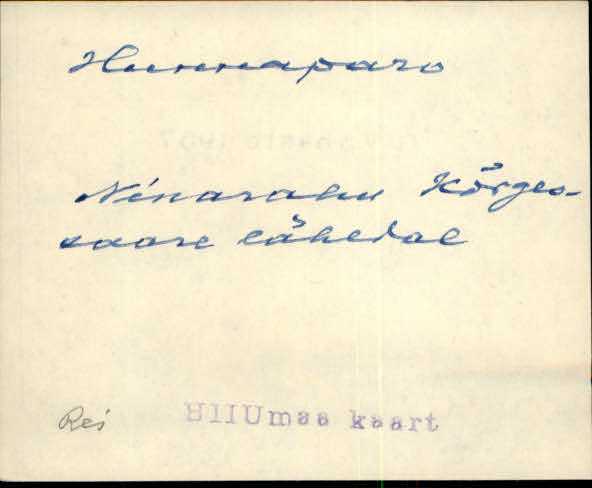 Hunnaparo
Ninarahu Kõrges-
saare lähedal
Rei HIIUmaa kaart